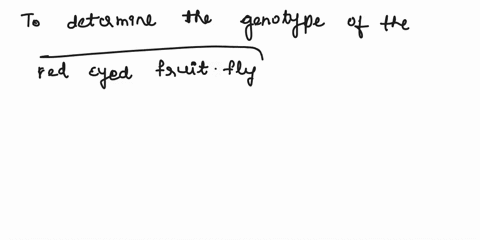 To determine the genotype of the
red eyed fruit.fly